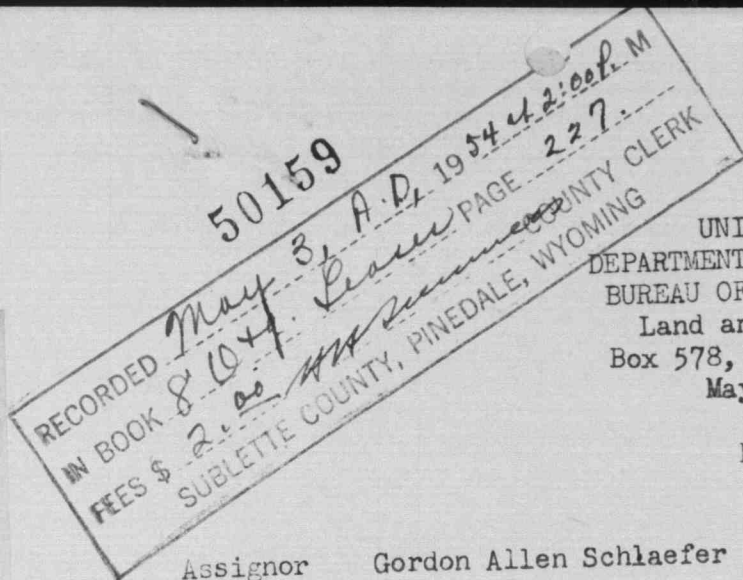 50159
RECORDED May 3, A.D. 1954 at 2:00 P. M
IN BOOK 8 O&G Leases PAGE 227.
FEES $ 2.00 COUNTY CLERK
SUBLETTE COUNTY, PINEDALE, WYOMING
UNI
DEPARTMENT
BUREAU OF
Land an
Box 578,
May
Assignor Gordon Allen Schlaefer